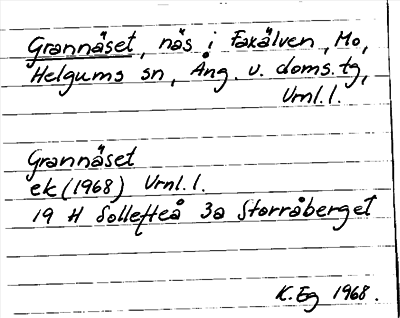 Grannäset, näs i Faxälven, Mo,
Helgums sn, Ång. v. doms. tg,
Vrnl. l.
Grannäset
ek (1968) Vrnl. l.
19 H Sollefteå 3a Storråberget
K. Eg 1968.